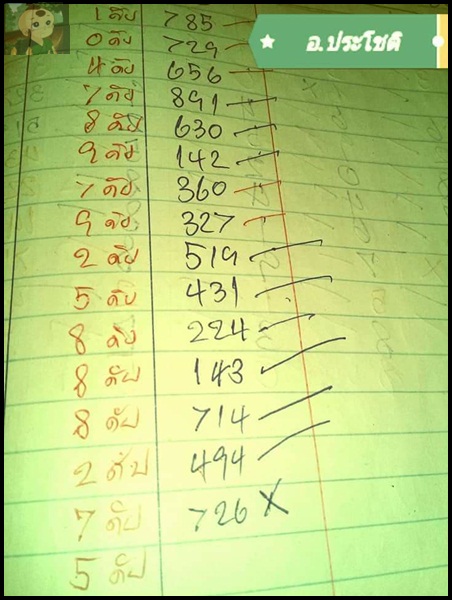 อ.ประโชติ
1 ดับ 785
0 ดับ 729
4 ดับ 656
7 ดับ 891
8 ดับ 630
9 ดับ 142
7 ดับ 360
9 ดับ 327
2 ดับ 519
5 ดับ 431
8 ดับ 224
8 ดับ 143
8 ดับ 714
2 ดับ 494
7 ดับ 726 X
5 ดับ